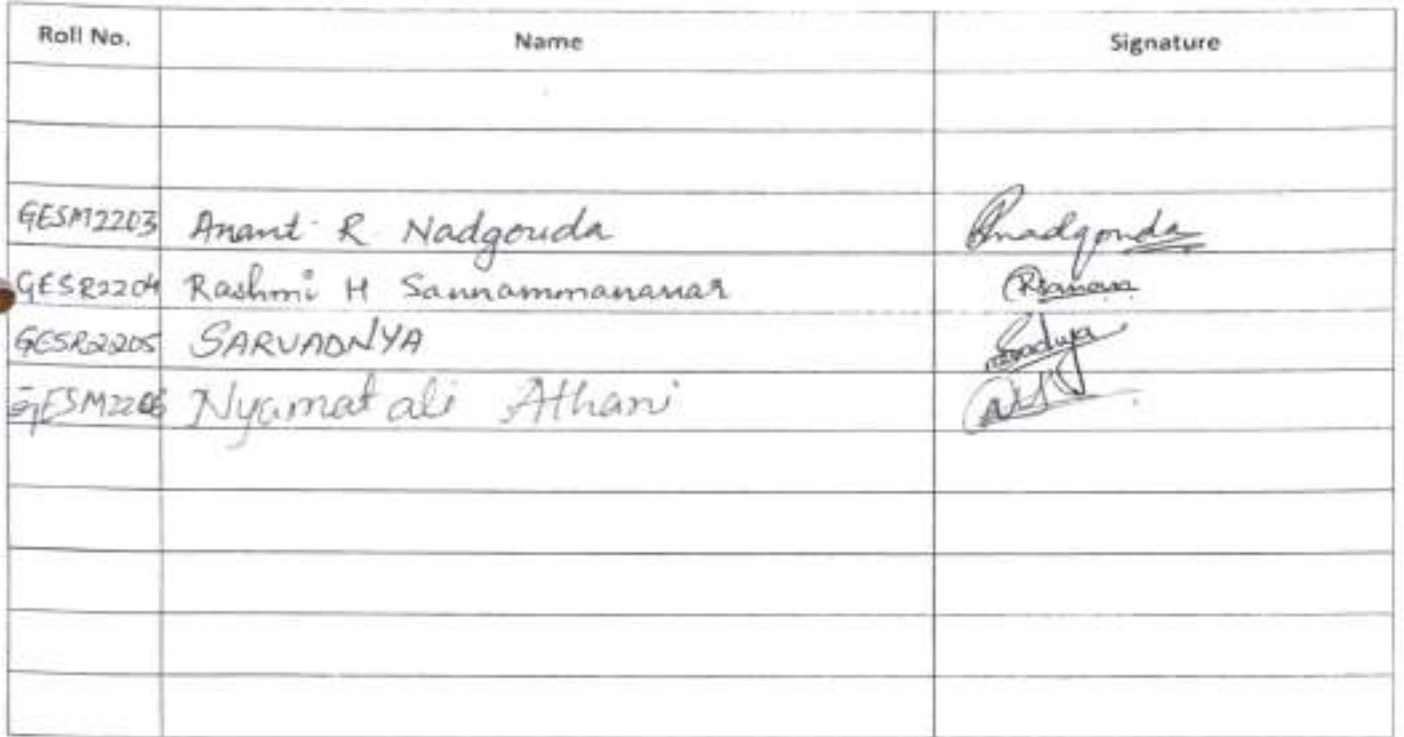 Roll No. Name Signature
GESM2203 Anant R Nadgouda Anadgouda
GESR2204 Rashmi H Sannammananar
GESR2205 SARVADNYA
GESM2206 Nyamat ali Athani